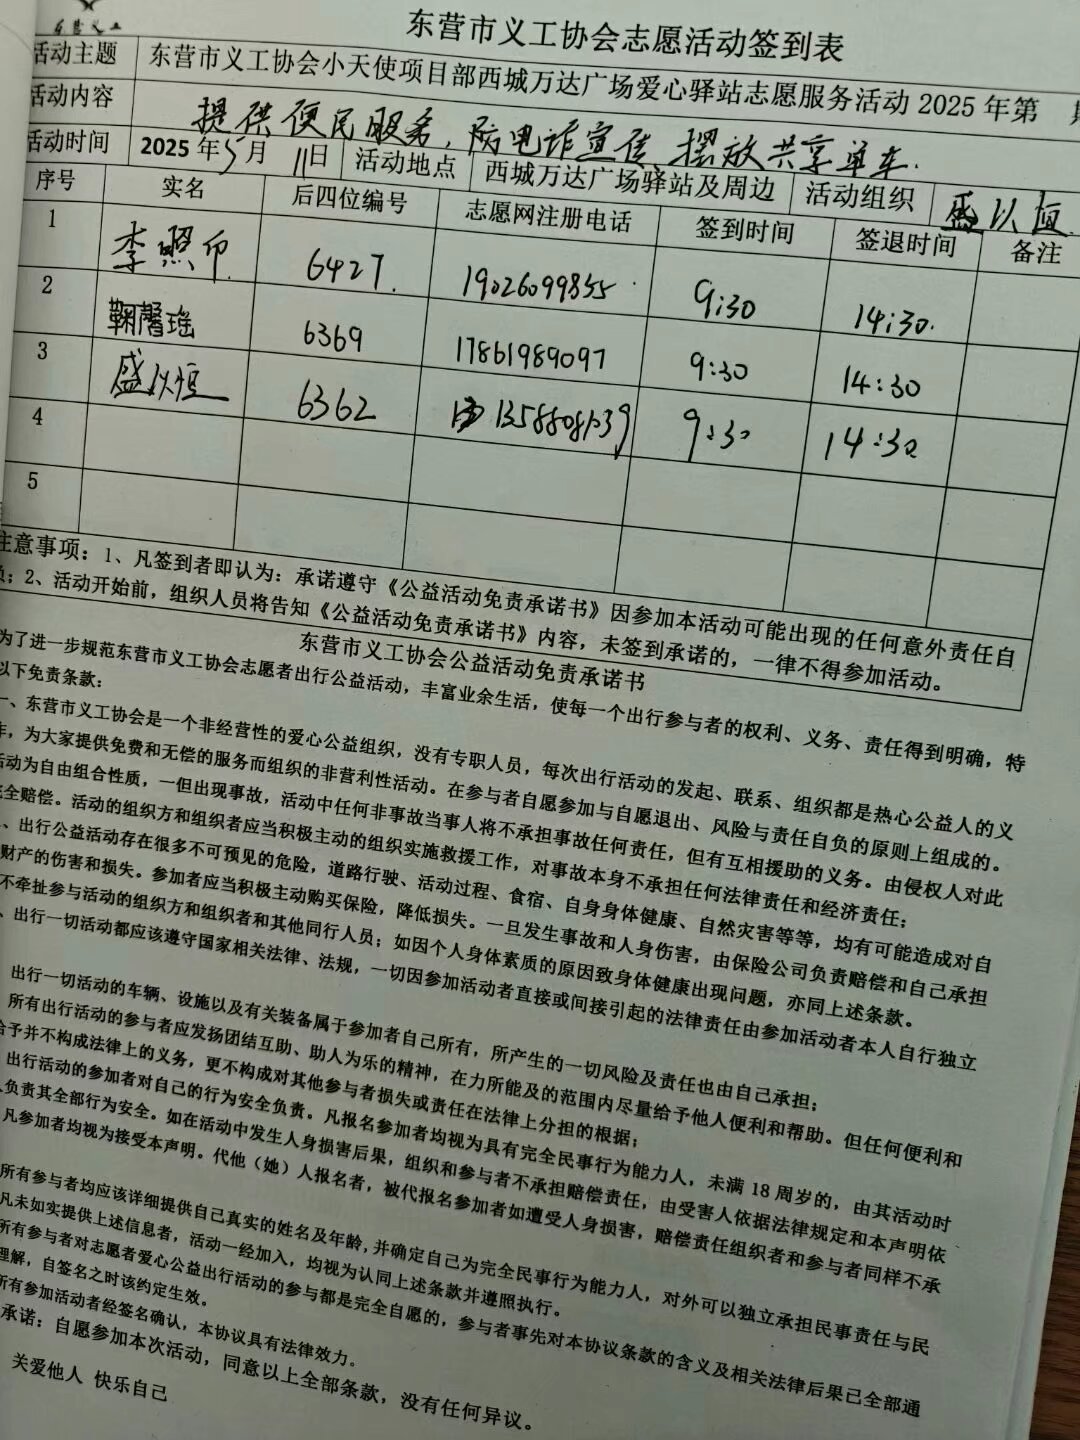 东营义工
东营市义工协会志愿活动签到表
活动主题 东营市义工协会小天使项目部西城万达广场爱心驿站志愿服务活动 2025 年第 期
活动内容 提供便民服务,防电诈宣传、摆放共享单车.
活动时间 2025 年 5 月 11 日 活动地点 西城万达广场驿站及周边 活动组织 盛以恒
序号 实名 后四位编号 志愿网注册电话 签到时间 签退时间 备注
1 李照印 6427. 19026099855 9:30 14:30.
2 鞠馨瑶 6369 17861989097 9:30 14:30
3 盛以恒 6362 9:30 14:30
4
5
注意事项:1、凡签到者即认为:承诺遵守《公益活动免责承诺书》因参加本活动可能出现的任何意外责任自
负;2、活动开始前,组织人员将告知《公益活动免责承诺书》内容,未签到承诺的,一律不得参加活动。
东营市义工协会公益活动免责承诺书
为了进一步规范东营市义工协会志愿者出行公益活动,丰富业余生活,使每一个出行参与者的权利、义务、责任得到明确,特
以下免责条款:
一、东营市义工协会是一个非经营性的爱心公益组织,没有专职人员,每次出行活动的发起、联系、组织都是热心公益人的义
作,为大家提供免费和无偿的服务而组织的非营利性活动。在参与者自愿参加与自愿退出、风险与责任自负的原则上组成的。
活动为自由组合性质,一但出现事故,活动中任何非事故当事人将不承担事故任何责任,但有互相援助的义务。由侵权人对此
完全赔偿。活动的组织方和组织者应当积极主动的组织实施救援工作,对事故本身不承担任何法律责任和经济责任;
、出行公益活动存在很多不可预见的危险,道路行驶、活动过程、食宿、自身身体健康、自然灾害等等,均有可能造成对自
财产的伤害和损失。参加者应当积极主动购买保险,降低损失。一旦发生事故和人身伤害,由保险公司负责赔偿和自己承担
不牵扯参与活动的组织方和组织者和其他同行人员;如因个人身体素质的原因致身体健康出现问题,亦同上述条款。
、出行一切活动都应该遵守国家相关法律、法规,一切因参加活动者直接或间接引起的法律责任由参加活动者本人自行独立
出行一切活动的车辆、设施以及有关装备属于参加者自己所有,所产生的一切风险及责任也由自己承担;
所有出行活动的参与者应发扬团结互助、助人为乐的精神,在力所能及的范围内尽量给予他人便利和帮助。但任何便利和
给予并不构成法律上的义务,更不构成对其他参与者损失或责任在法律上分担的根据;
出行活动的参加者对自己的行为安全负责。凡报名参加者均视为具有完全民事行为能力人,未满 18 周岁的,由其活动时
人负责其全部行为安全。如在活动中发生人身损害后果,组织和参与者不承担赔偿责任,由受害人依据法律规定和本声明依
凡参加者均视为接受本声明。代他(她)人报名者,被代报名参加者如遭受人身损害,赔偿责任组织者和参与者同样不承
所有参与者均应该详细提供自己真实的姓名及年龄,并确定自己为完全民事行为能力人,对外可以独立承担民事责任与民
凡未如实提供上述信息者,活动一经加入,均视为认同上述条款并遵照执行。
所有参与者对志愿者爱心公益出行活动的参与都是完全自愿的,参与者事先对本协议条款的含义及相关法律后果已全部通
理解,自签名之时该约定生效。
所有参加活动者经签名确认,本协议具有法律效力。
承诺:自愿参加本次活动,同意以上全部条款,没有任何异议。
关爱他人 快乐自己